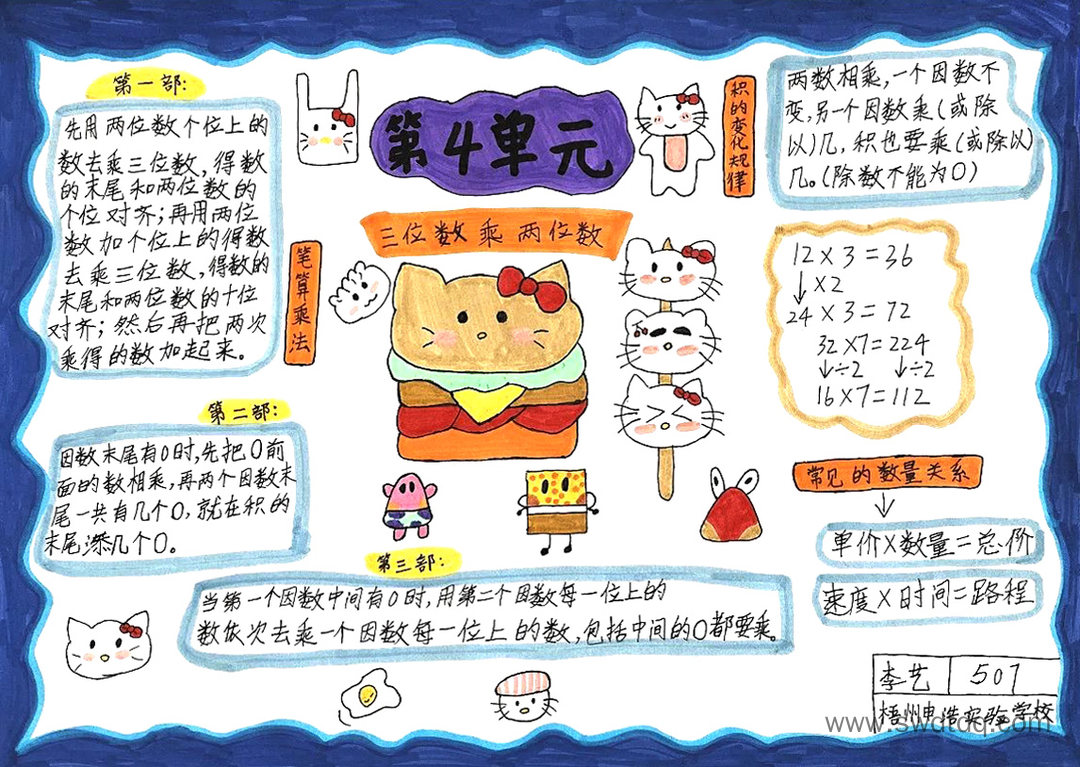 第4单元
三位数乘两位数
第一部:
先用两位数个位上的
数去乘三位数,得数
的末尾和两位数的
个位对齐;再用两位
数加个位上的得数
去乘三位数,得数的
末尾和两位数的十位
对齐;然后再把两次
乘得的数加起来。
笔算乘法
第二部:
因数末尾有0时,先把0前
面的数相乘,再两个因数末
尾一共有几个0,就在积的
末尾添几个0。
第三部:
当第一个因数中间有0时,用第二个因数每一位上的
数依次去乘一个因数每一位上的数,包括中间的0都要乘。
积的变化规律
两数相乘,一个因数不
变,另一个因数乘(或除
以)几,积也要乘(或除以)
几。(除数不能为0)
12×3=36
↓×2
24×3=72
32×7=224
↓÷2 ↓÷2
16×7=112
常见的数量关系
↓
单价×数量=总价
速度×时间=路程
李艺 507
梧州市 实验学校
www.swdtdq.com